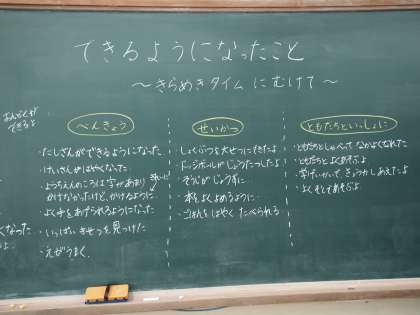 できるようになったこと
～きらめきタイム にむけて～
おんどくが
できるよ
べんきょう
・たしざんができるようになった
・けいさんがはやくなった
・ようちえんのころは字があまり
かけなかったけど、かけるように
・よく手をあげられるようになった
・いっぱいきせつを見つけた
・えがうまく
せいかつ
・しょくぶつを大せつにそだてたよ
・ドッジボールがじょうたつしたよ
・そうじがじょうずに
・本をよくよめるように
・ごはんをはやくたべられる
ともだちといっしょに
・ともだちとしゃべって なかよくなれた
・ともだちとよくあそぶよ
・学げいかいで、きょうかしあえたよ
・よくそとであそぶよ
くなった